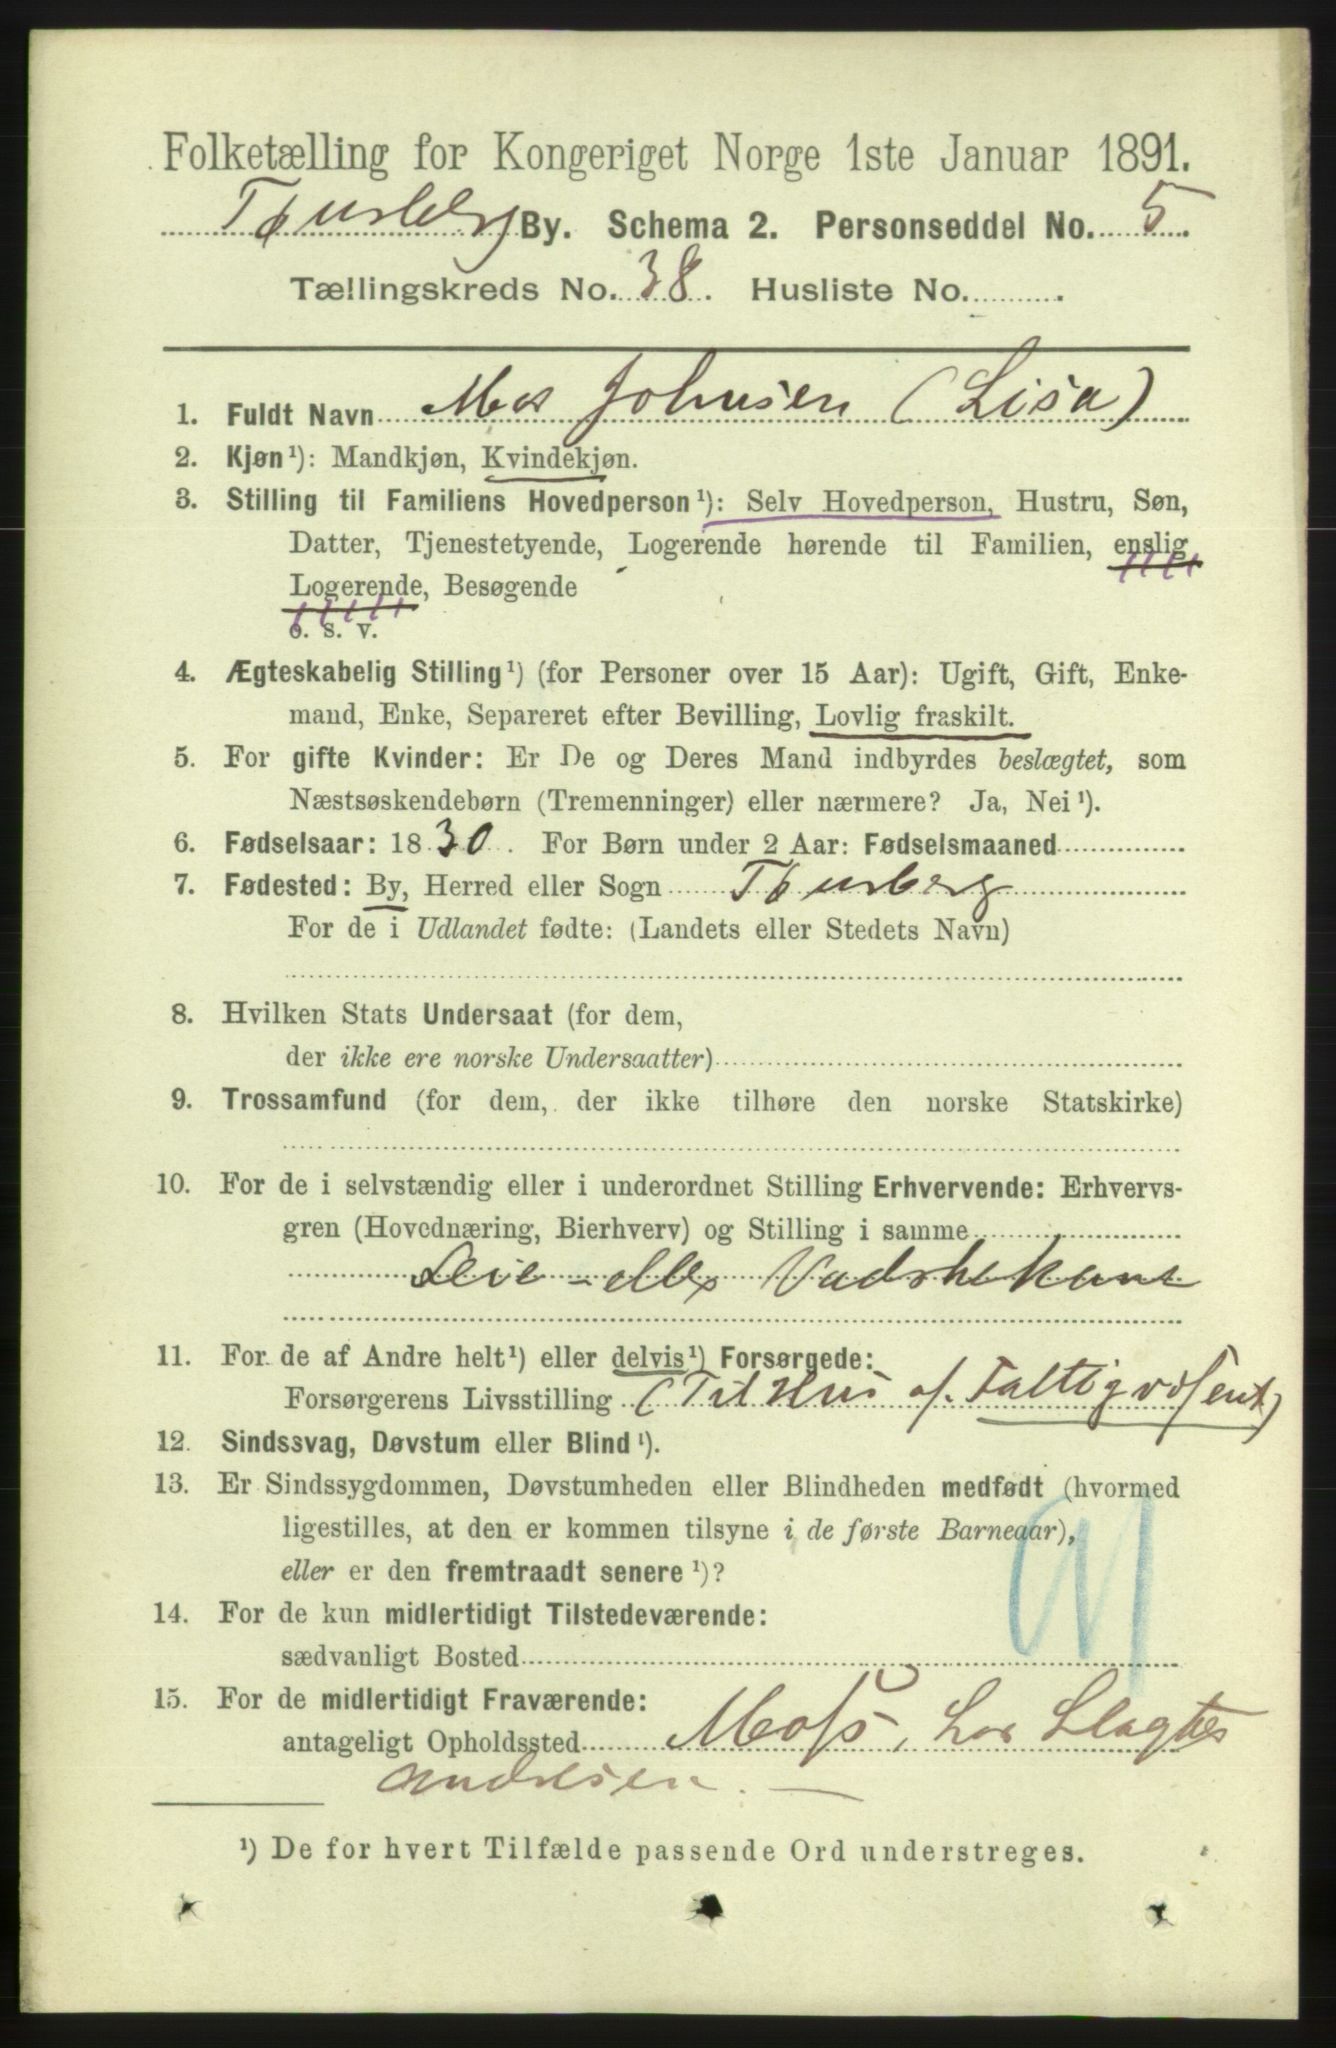 Folketælling for Kongeriget Norge 1ste Januar 1891.
Tønsberg By. Schema 2. Personseddel No. 5.
Tællingskreds No. 38. Husliste No.
1. Fuldt Navn Johnsen (Lisa)
2. Kjøn¹): Mandkjøn, Kvindekjøn.
3. Stilling til Familiens Hovedperson¹): Selv Hovedperson, Hustru, Søn,
Datter, Tjenestetyende, Logerende hørende til Familien, enslig
Logerende, Besøgende
o. s. v.
4. Ægteskabelig Stilling¹) (for Personer over 15 Aar): Ugift, Gift, Enke-
mand, Enke, Separeret efter Bevilling, Lovlig fraskilt.
5. For gifte Kvinder: Er De og Deres Mand indbyrdes beslægtet, som
Næstsøskendebørn (Tremenninger) eller nærmere? Ja, Nei¹).
6. Fødselsaar: 1830. For Børn under 2 Aar: Fødselsmaaned
7. Fødested: By, Herred eller Sogn Tønsberg
For de i Udlandet fødte: (Landets eller Stedets Navn)
8. Hvilken Stats Undersaat (for dem,
der ikke ere norske Undersaatter)
9. Trossamfund (for dem, der ikke tilhøre den norske Statskirke)
10. For de i selvstændig eller i underordnet Stilling Erhvervende: Erhvervs-
gren (Hovednæring, Bierhverv) og Stilling i samme
Leie - Vadskekone
11. For de af Andre helt¹) eller delvis¹) Forsørgede:
Forsørgerens Livsstilling (Til Hus af Fattigvæsent)
12. Sindssvag, Døvstum eller Blind¹).
13. Er Sindssygdommen, Døvstumheden eller Blindheden medfødt (hvormed
ligestilles, at den er kommen tilsyne i de første Barneaar),
eller er den fremtraadt senere¹)?
14. For de kun midlertidigt Tilstedeværende:
sædvanligt Bosted
15. For de midlertidigt Fraværende:
antageligt Opholdssted Moss, hos Slagter
Andresen. —
¹) De for hvert Tilfælde passende Ord understreges.